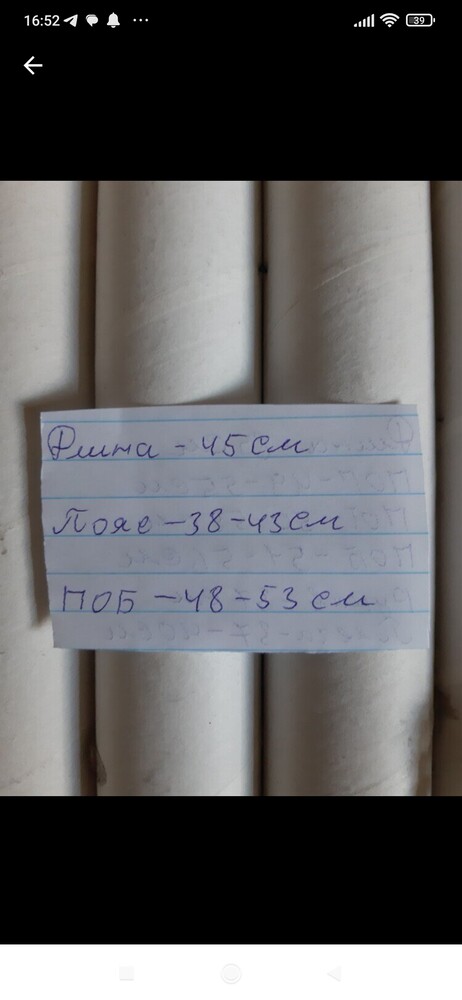 16:52
39
Длина - 45 см
Пояс - 38 - 43 см
ПОБ - 48 - 53 см